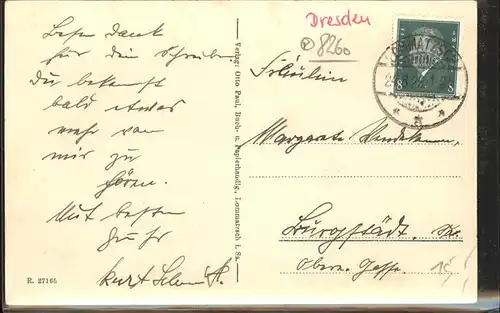 Dresden
8260
LOMMATZSCH
8 8
Besten Dank
für dein Schreiben
Du bekommst
bald etwas
mehr von
mir zu
hören.
Mit besten
Gruß
Kurt
Verlag: Otto Paul, Buch- u. Papierhandlg. Lommatzsch i. Sa.
R. 27165
Fräulein
Margarete
Burgstädt, Sa.
Obere
15